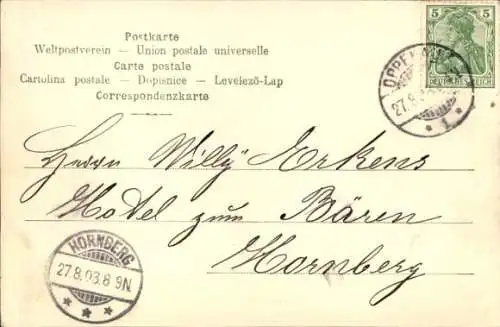 Postkarte
Weltpostverein — Union postale universelle
Carte postale
Cartolina postale — Dopisnice — Levelező-Lap
Correspondenzkarte
5 5
DEUTSCHES REICH
27.8
* 1 *
Herrn Willy Erkens
Hotel zum Bären
Hornberg
HORNBERG
27.8.03.8-9N.
* * *